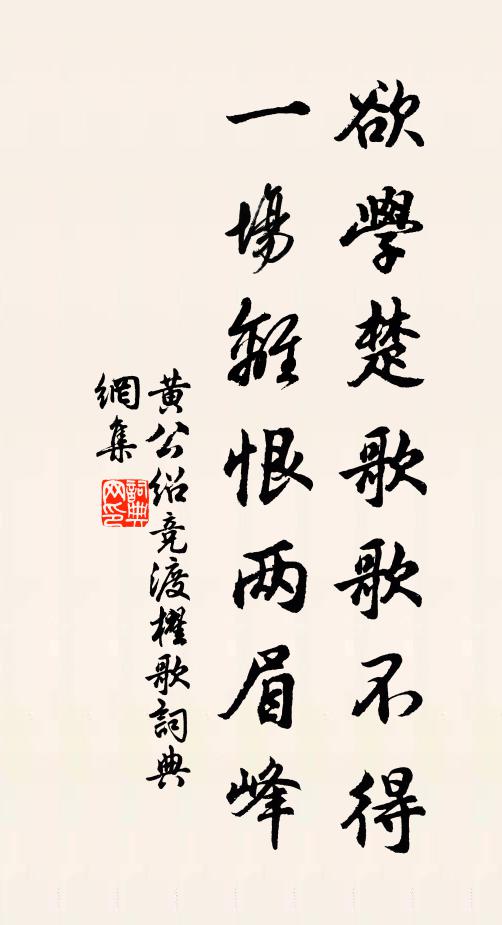 欲學楚歌歌不得
一場離恨两眉峰
黃公紹競渡櫂歌詞典
網集
詞典
网印